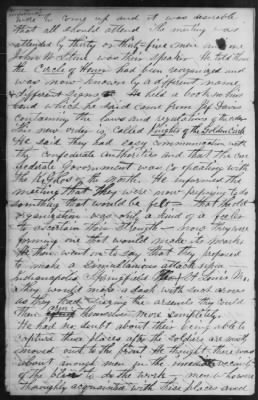 were to come up and it was desirable
that all should attend. The meeting was
attended by thirty or thirty-five men and one
John H. Stone was their speaker. He told them
the Circle of Honor had been reorganized and
was now known by a different name
& different signs. He held a book in his
hand which he said came from Jeff Davis
containing the laws and regulations of the order
this new order is called Knights of the Golden Circle
He said they had easy communication with
the Confederate authorities and that the con
federate Government was Co-operating with
the K. G. of the North. He informed the
meeting that they were now preparing to do
something that would be felt — that the old
organization was only a kind of a feeler
to ascertain their strength — now they were
forming one that would make its mark
He then went on to say that they proposed
to make a simultaneous attack upon
Indianapolis Springfield St. Louis Mo.
They would make a dash with such arms
as they had & seizing the arsenals they could
then arm themselves more completely.
He had no doubt about their being able to
capture these places after the soldiers are mostly
moved out to the front. He thought there was
about enough men in the immediate vicinity
of the to do the work — now who were
thoroughly acquainted with these places and